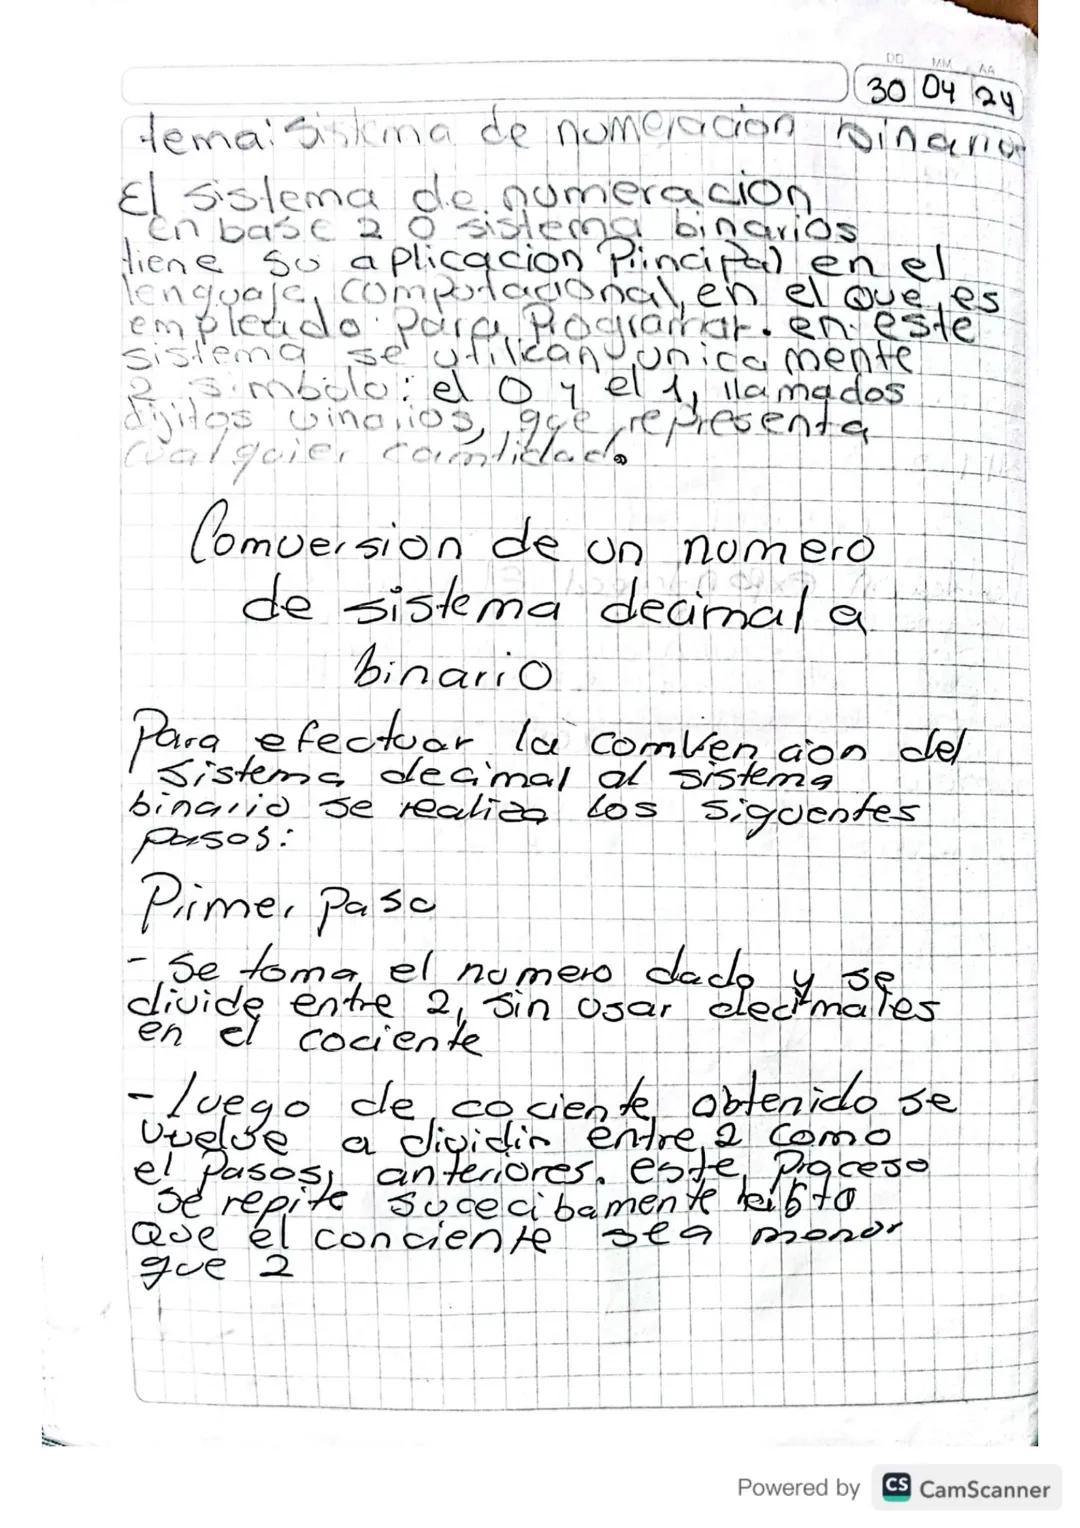 DD MM AA
30 04 24
tema: Sistema de numeracion binario
El sistema de numeracion
en base 2 O sistema binarios
tiene su aplicacion Principal en el
lenguaje, computacional, en el que es
empleado para Programar. en este
sistema se utilizan unica mente
2 simbolo: el 0 y el 1, llamados
dijitos vinarios, que representa
cualquier camtidad.
Comversion de un numero
de sistema decimal a
binario
Para efectuar la comvencion del
sistema decimal al sistema
binario se realiza los siguentes
pasos:
Primer Paso
- Se toma el numero dado y se
divide entre 2, sin usar decimales
en el cociente
- luego de cociente obtenido se
vuelve a dividir entre 2 como
el pasos, anteriores. este, Proceso
se repite sucecibamente
Que el conciente sea monor
que 2
Powered by CS CamScanner